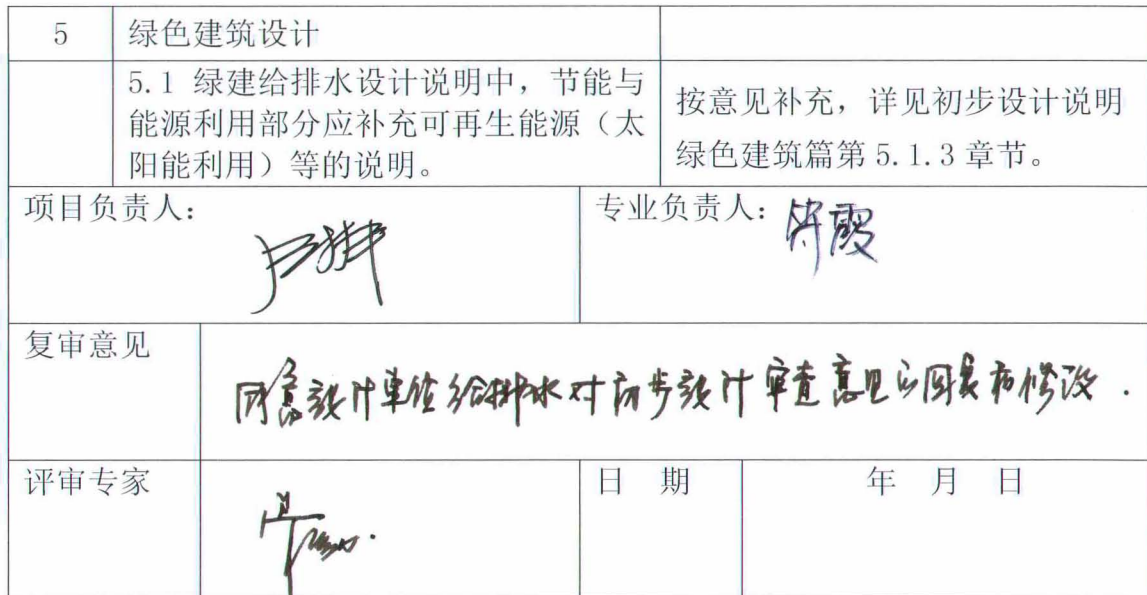 5 绿色建筑设计
5.1 绿建给排水设计说明中，节能与
能源利用部分应补充可再生能源（太
阳能利用）等的说明。
按意见补充，详见初步设计说明
绿色建筑篇第 5.1.3 章节。
项目负责人：
专业负责人：
复审意见
同意设计单位给排水对初步设计审查意见的回复和修改.
评审专家
日 期
年 月 日